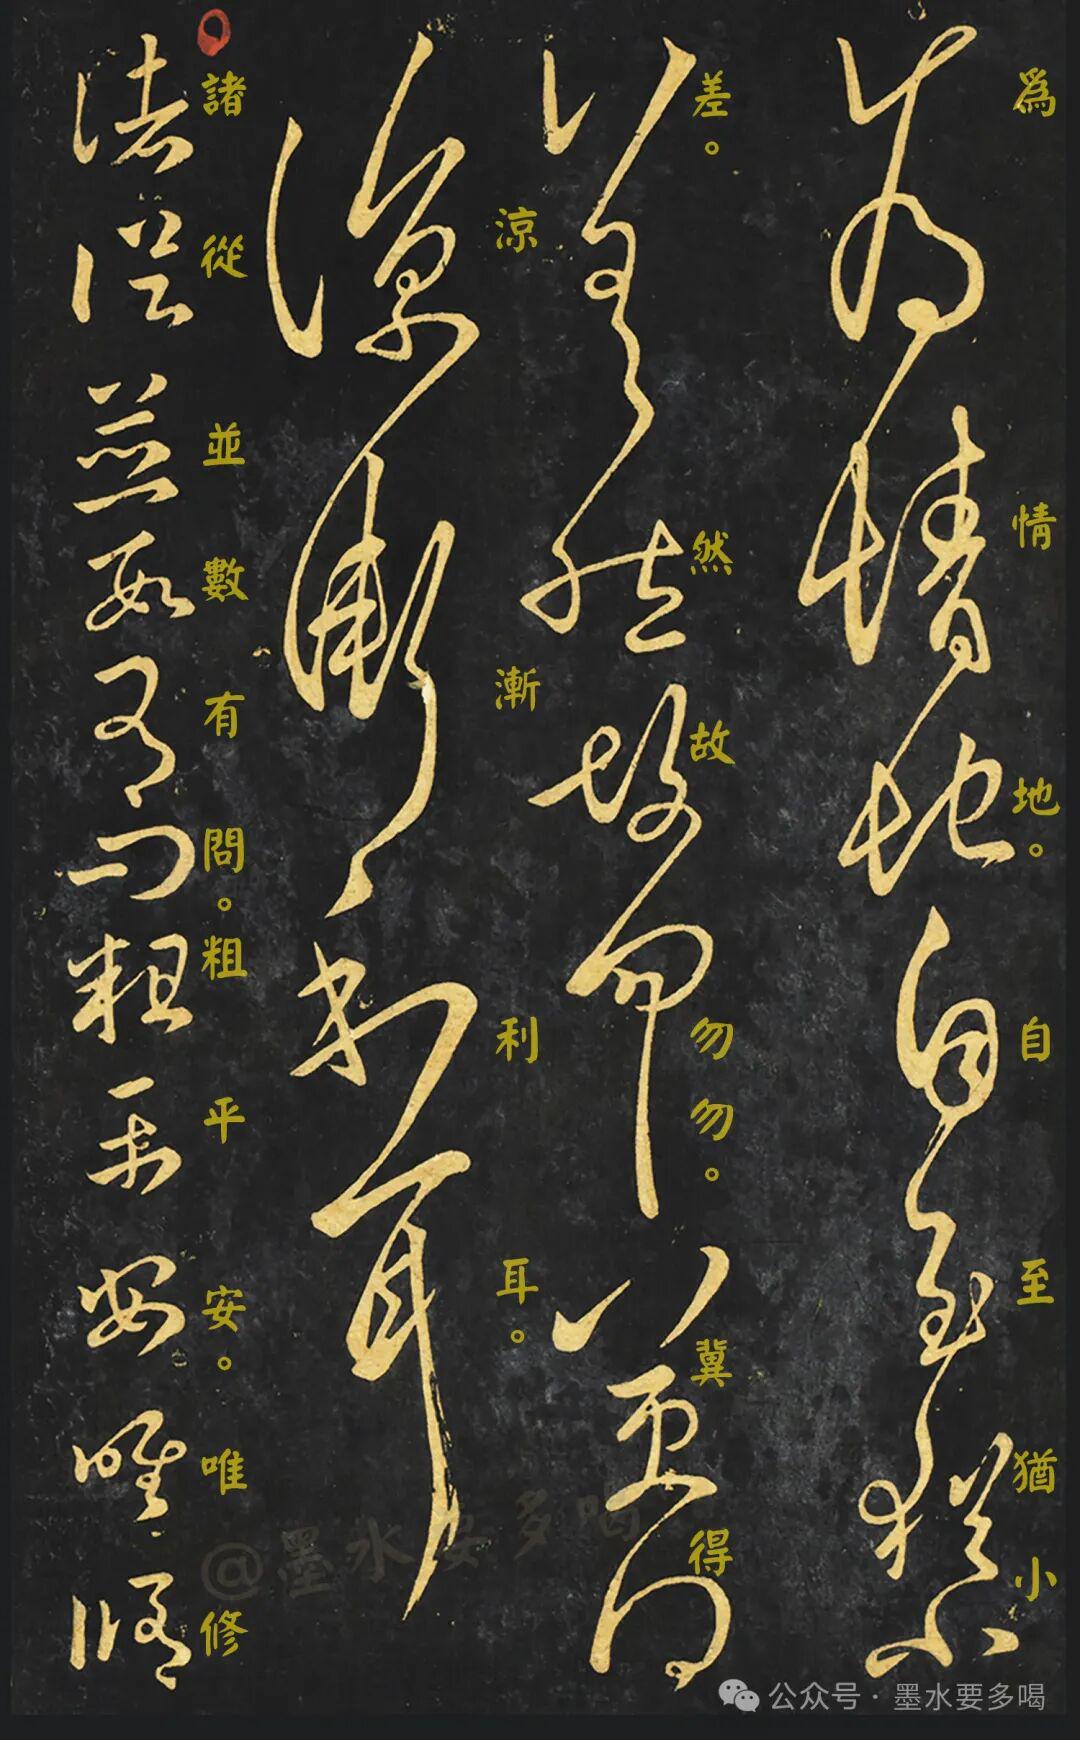 爲情地。自至猶小
差。然故勿勿。冀得
涼漸利耳。
諸從並數有問。粗平安。唯修
@墨水要多喝
公众号·墨水要多喝